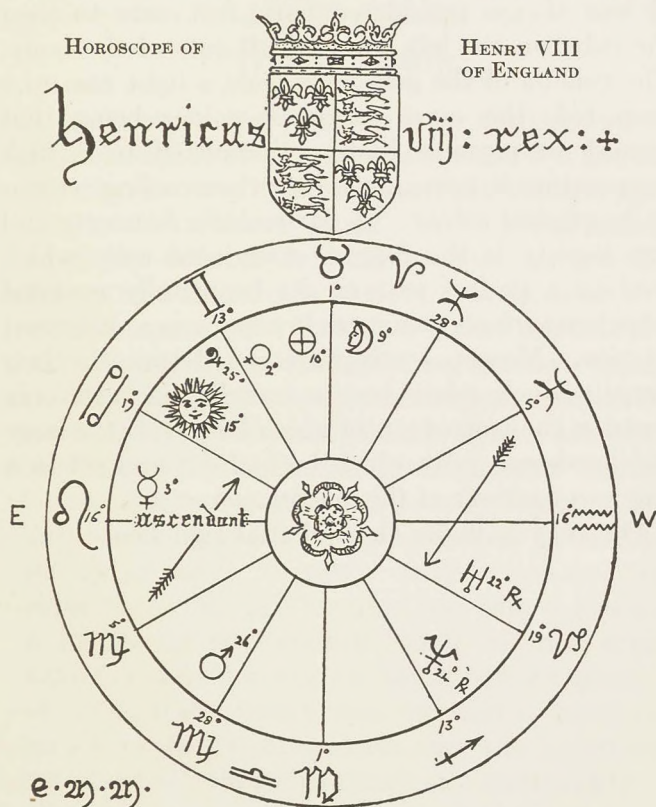 HOROSCOPE OF
HENRY VIII
OF ENGLAND
henricus vııj: rex: +
♉ ♈
♊ 13° 1° 28° ♓
♃ 25° ♀ 2° ⊕ 10° ☽ 9°
♋ 19° 15° 5° ♓
☿ 3°
E ♌ 16° ascendant 16° ♒ W
♅ 22° ℞
♍ 5° 19° ♑
♂ 26° ♆ 24° ℞
28° 1° 13°
♍ ♎ ♏ ♐
e·m·m·